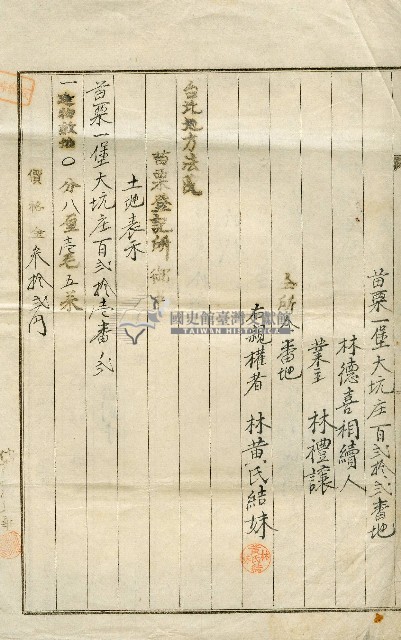 苗栗一堡大坑庄百弍拾弍番地
林德喜相續人
業主 林禮讓
仝所仝番地
右親權者 林黃氏結妹
台北地方法院
苗栗登記所 御中
土地表示
苗栗一堡大坑庄百弍拾壱番ノ弍
一建物敷地〇分八厘壱毛五糸
價格金参拾弍円
國史館臺灣文獻館
TAIWAN HISTORICA